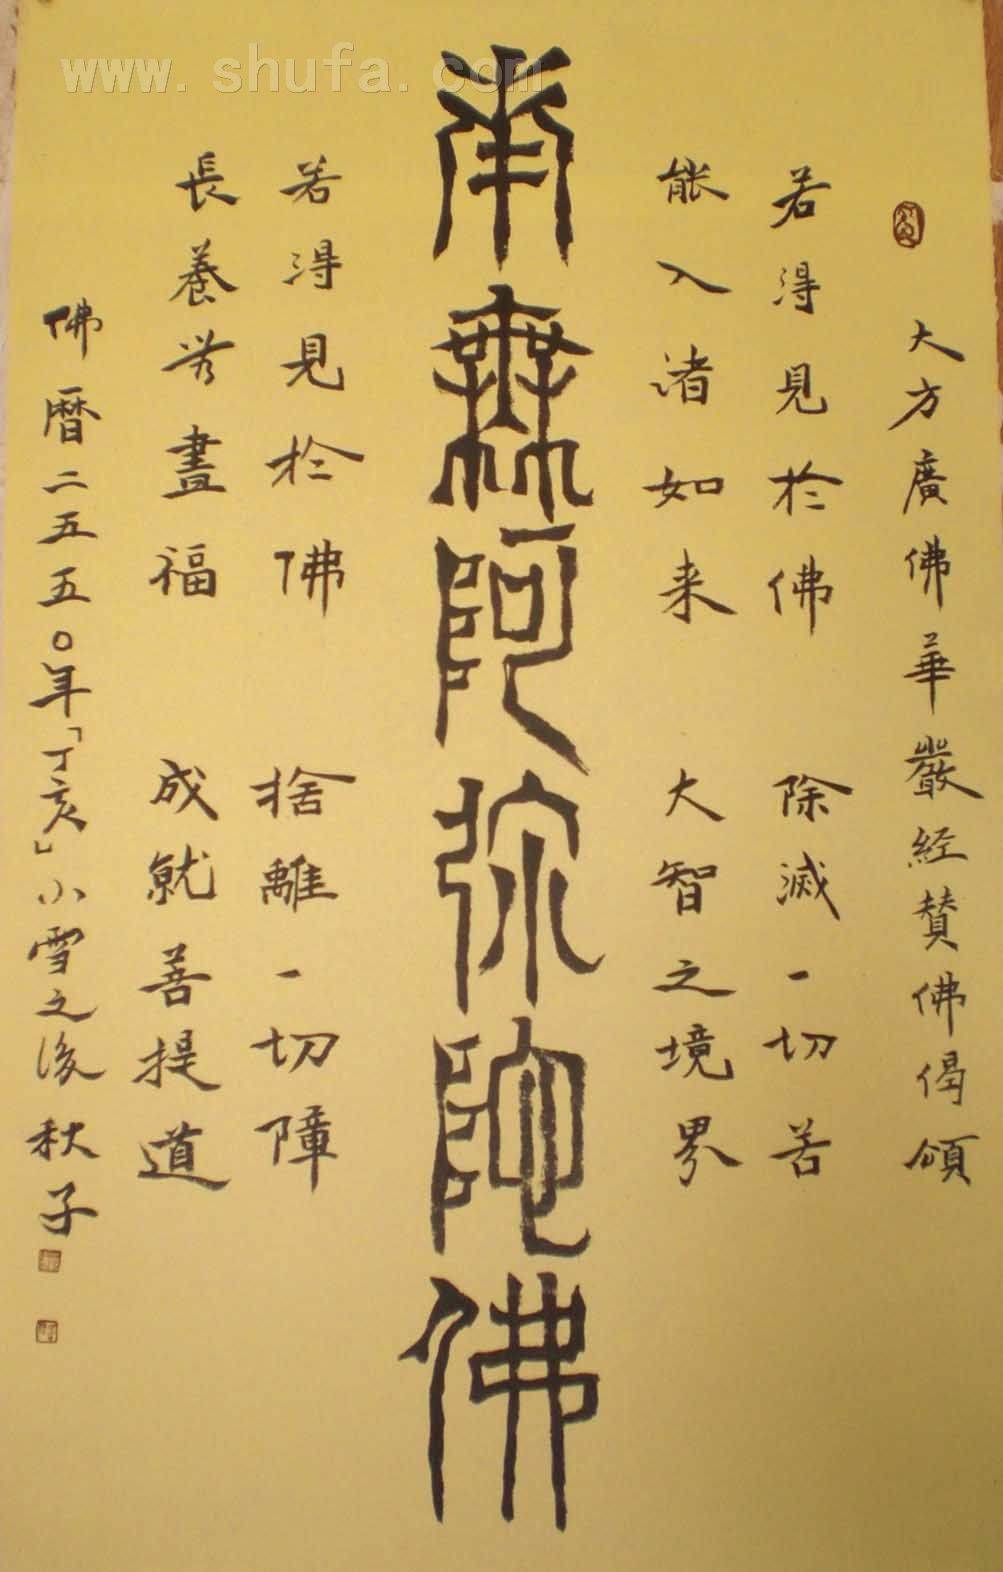 www.shufa.com
大方廣佛華嚴経賛佛偈頌
若得見於佛 除滅一切苦
能入诸如来 大智之境界
南無阿弥陀佛
若得見於佛 捨離一切障
長養无盡福 成就菩提道
佛曆二五五〇年「丁亥」小雪之後秋子